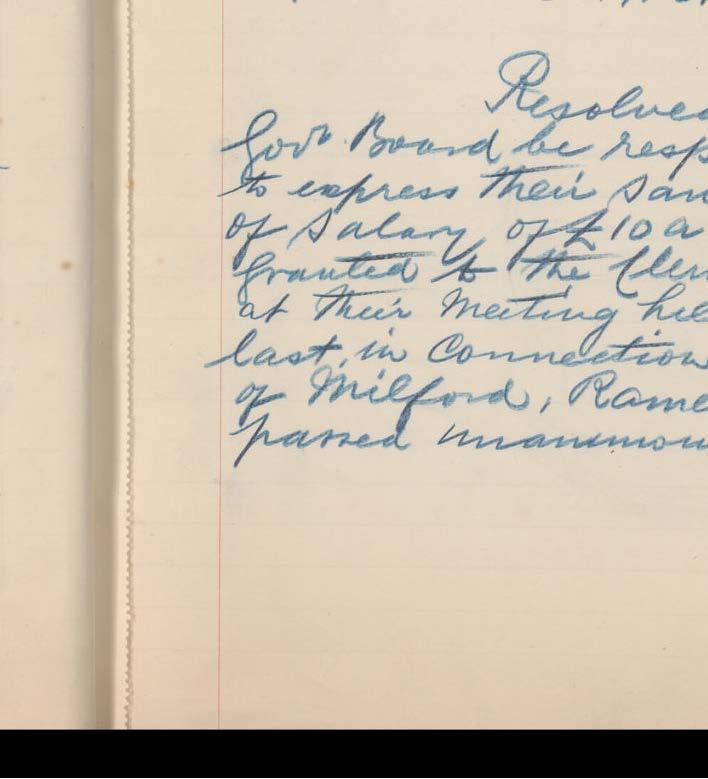 Resolved
Govt Board be resp
to express their san
of Salary of £10 a
granted to the Cler
at their Meeting hel
last, in Connection
of Milford, Rame
passed unanimou